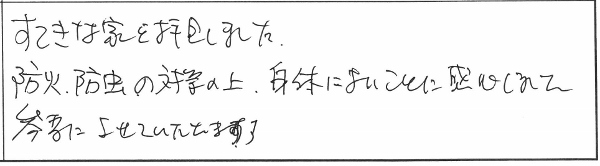 すてきな家を拝見しました.
防火.防虫の対策の上.身体によいことに感心しました
参考にさせていただきます